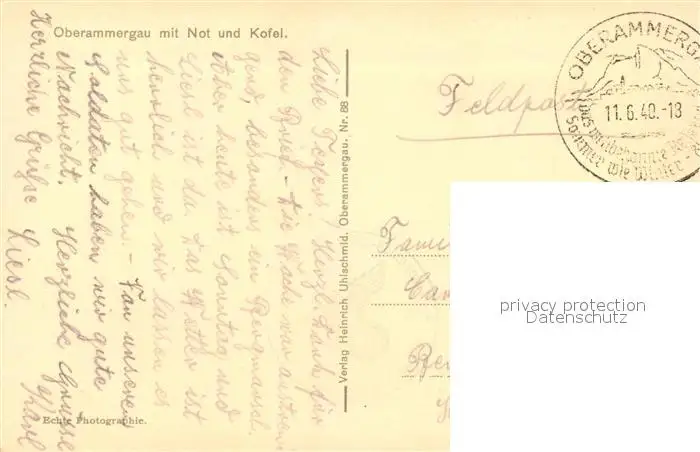 Oberammergau mit Not und Kofel.
Liebe Heyens! Herzl. Dank für
den Brief – Die Woche war anstren-
gend, besonders ein Bergmarsch.
Aber heute ist Sonntag und
Liesl ist da. Das Wetter ist
herrlich und wir lassen es
uns gut gehen. – Von unseren
Soldaten haben wir gute
Nachricht. Herzliche Grüße
Karl
Herzliche Grüße Liesl.
Echte Photographie.
Verlag Heinrich Uhlschmid, Oberammergau. Nr. 88
Feldpost
OBERAMMERGA
11.6.40.-13
Sommer wie Winter
Fami
privacy protection
Datenschutz